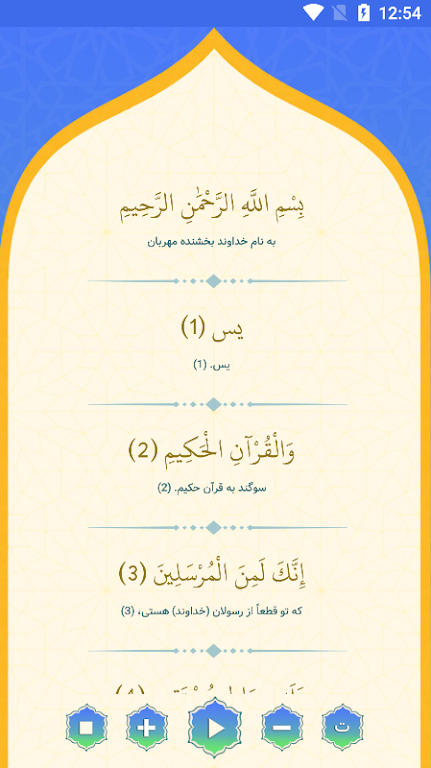 12:54
بِسْمِ اللَّهِ الرَّحْمَٰنِ الرَّحِيمِ
به نام خداوند بخشنده مهربان
يس (1)
یس. (1)
وَالْقُرْآنِ الْحَكِيمِ (2)
سوگند به قرآن حکیم. (2)
إِنَّكَ لَمِنَ الْمُرْسَلِينَ (3)
که تو قطعاً از رسولان (خداوند) هستی، (3)
(4)
ت